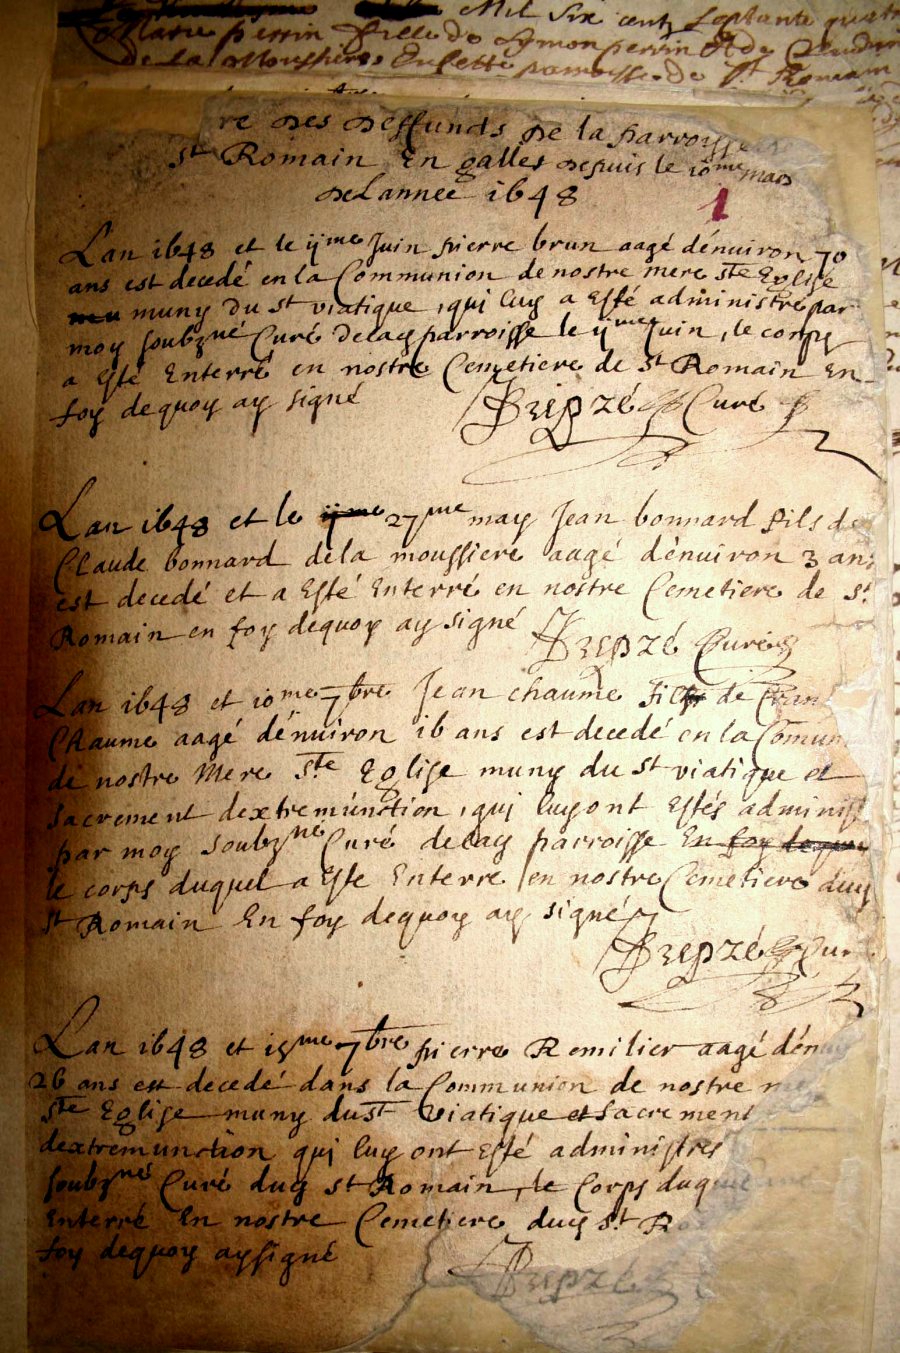 Mil Six cent Septante quatre
Marie perrin fille de Symon perrin Et de Claudine
de la Moussiere Ensette parroisse de St Romain
re des deffunds de la parroisse
St Romain En galles depuis le 10me mars
de Lannee 1648
1
Lan 1648 et le ijme Juin pierre brun aagé dénuiron 70
ans est decedé en la Communion de nostre mere ste Eglise
muny du st viatique, qui luy a Esté administré par
moy soubzné Curé delad parroisse le ijme Juin, le corps
a Esté Enterré en nostre Cemetiere de St Romain En
foy dequoy ay signé
Curé
Lan 1648 et le 27me may Jean bonnard fils de
Claude bonnard dela moussiere aagé dénuiron 3 ans
est decedé et a Esté Enterré en nostre Cemetiere de St
Romain en foy dequoy ay signé
Curé
Lan 1648 et 10me 7bre Jean chaume fils de
Chaume aagé dénuiron 16 ans est decedé en la Comun
de nostre Mere ste Eglise muny du st viatique et
sacrement dextremunction, qui luy ont Estés adminis
par moy soubzne Curé delad parroisse En foy dequoy
le corps duquel a Este Enterre en nostre Cemetiere dud
st Romain En foy dequoy ay signé
Cur
Lan 1648 et 15me 7bre pierre Remilier aagé dénui
26 ans est decedé dans la Communion de nostre me
ste Eglise muny du st viatique et sacrement
dextremunction qui luy ont Esté administres
soubzné Curé dud st Romain, le Corps duquel
Enterré En nostre Cemetiere dud st Ro
foy dequoy ay signé